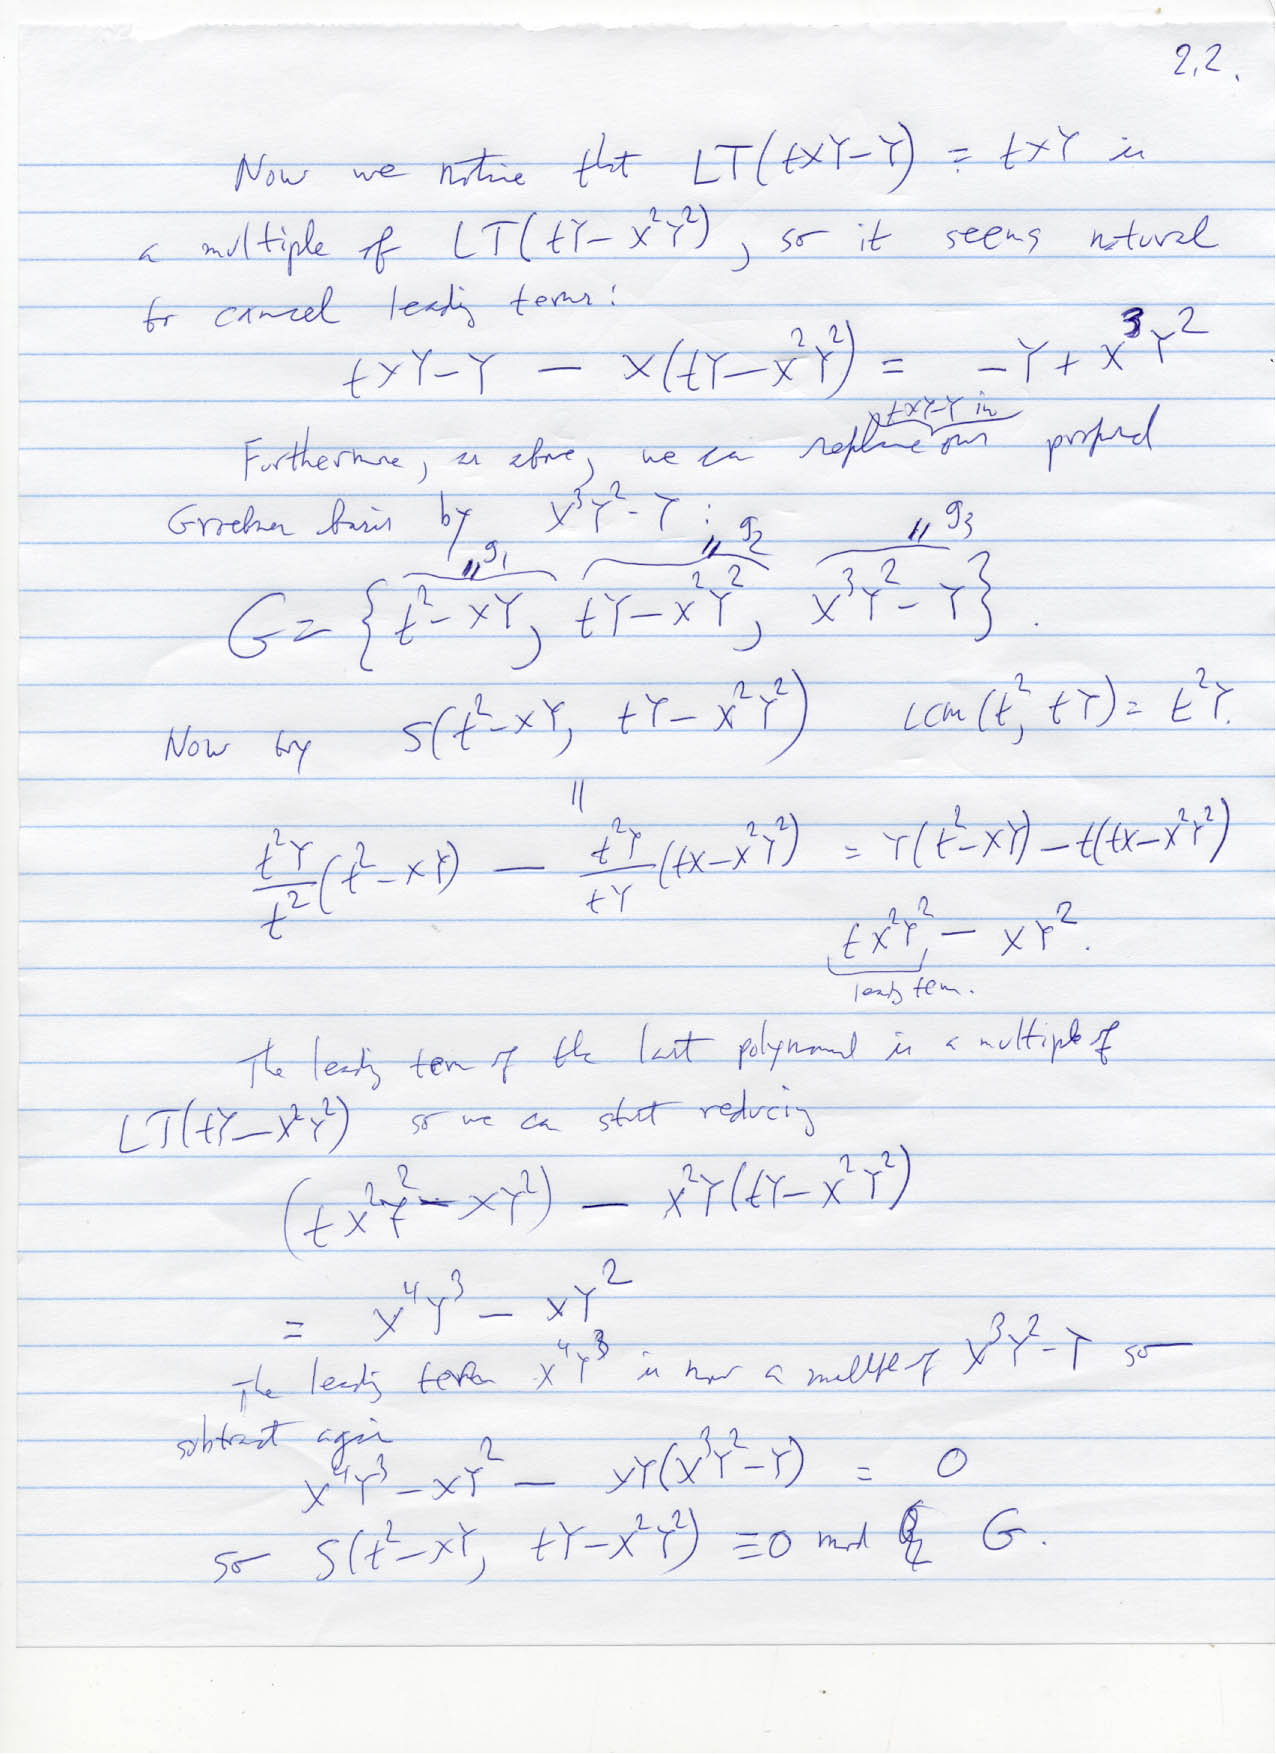 2.2.
Now we notice that LT(txY-Y) = txY is
a multiple of LT(tY-x²Y²), so it seems natural
to cancel leading terms:
txY-Y - x(tY-x²Y²) = -Y + x³Y²
txY-Y in
Furthermore, as above, we can replace our proposed
Groebner basis by x³Y²-Y :
g₁ g₂ g₃
G = {t²-xY, tY-x²Y², x³Y²-Y}.
Now try S(t²-xY, tY-x²Y²) LCM(t², tY) = t²Y.
||
t²Y/t² (t²-xY) - t²Y/tY (tx-x²Y²) = Y(t²-xY) - t(tx-x²Y²)
tx²Y² - xY².
leading term.
The leading term of the last polynomial is a multiple of
LT(tY-x²Y²) so we can start reducing
(tx²Y² - xY²) - x²Y(tY-x²Y²)
= x⁴Y³ - xY²
The leading term x⁴Y³ is now a multiple of x³Y²-Y so
subtract again
x⁴Y³-xY² - xY(x³Y²-Y) = 0
so S(t²-xY, tY-x²Y²) ≡ 0 mod G.